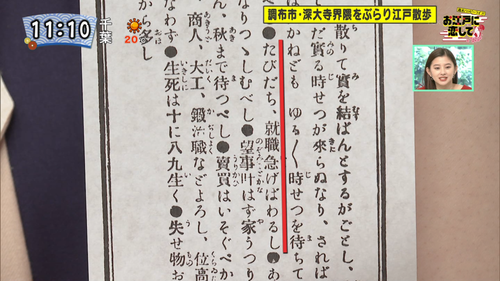 11:10
千葉
20
調布市・深大寺界隈をぶらり江戸散歩
お江戸に恋して
散りて實を結ばんとするがごとし、
だ實る時せつが來らぬなり、されば
はかねども ゆる〱時せつを待ちて
●たびだち、就職急げばわるし●あ
りつゝしむべし●望事叶はず家うつり
ん、秋まで待つべし●賣買はいそぐべか
、商人、大工、鍛冶職などよろし、位高
なわず●生死は十に八九生く●失せ物お
から多し